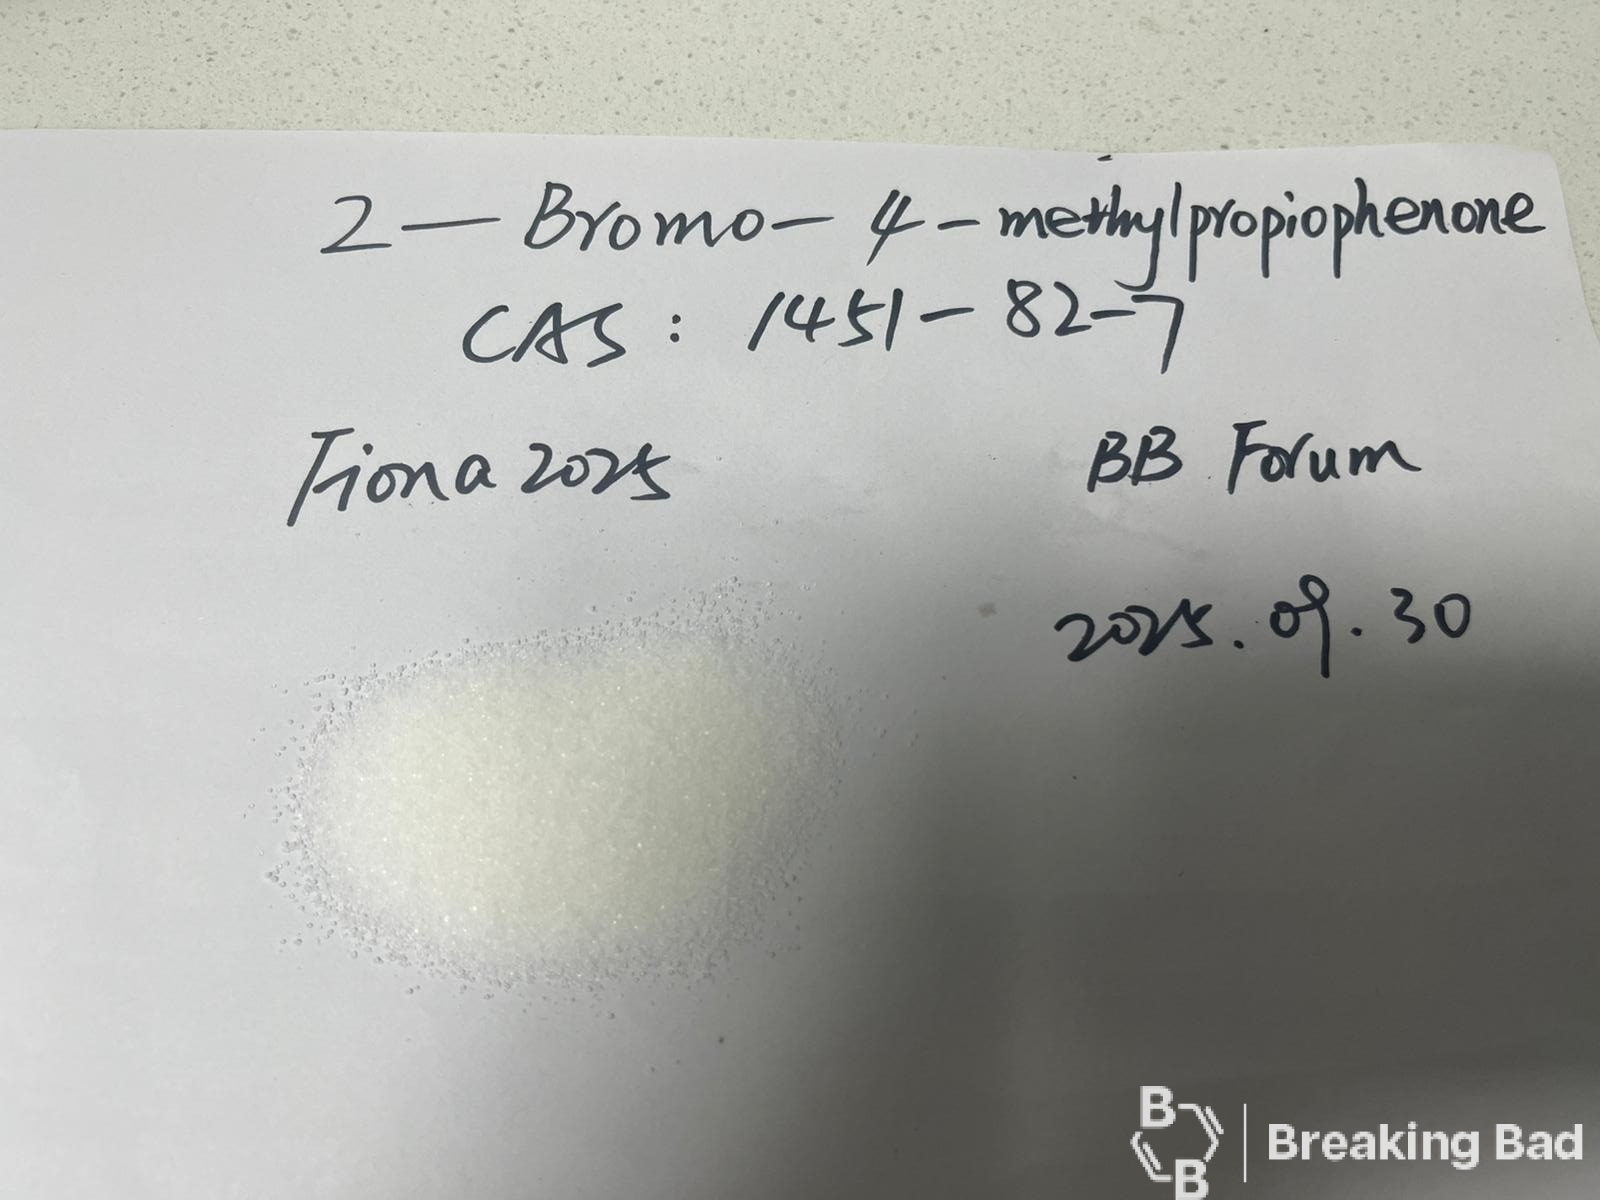 2-Bromo-4-methylpropiophenone
CAS: 1451-82-7
Fiona 2025 BB Forum
2025.09.30
B
B
Breaking Bad